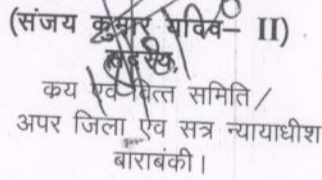 (संजय कुमार यादव– II)
सदस्य,
कय एवं वित्त समिति /
अपर जिला एव सत्र न्यायाधीश
बाराबंकी।